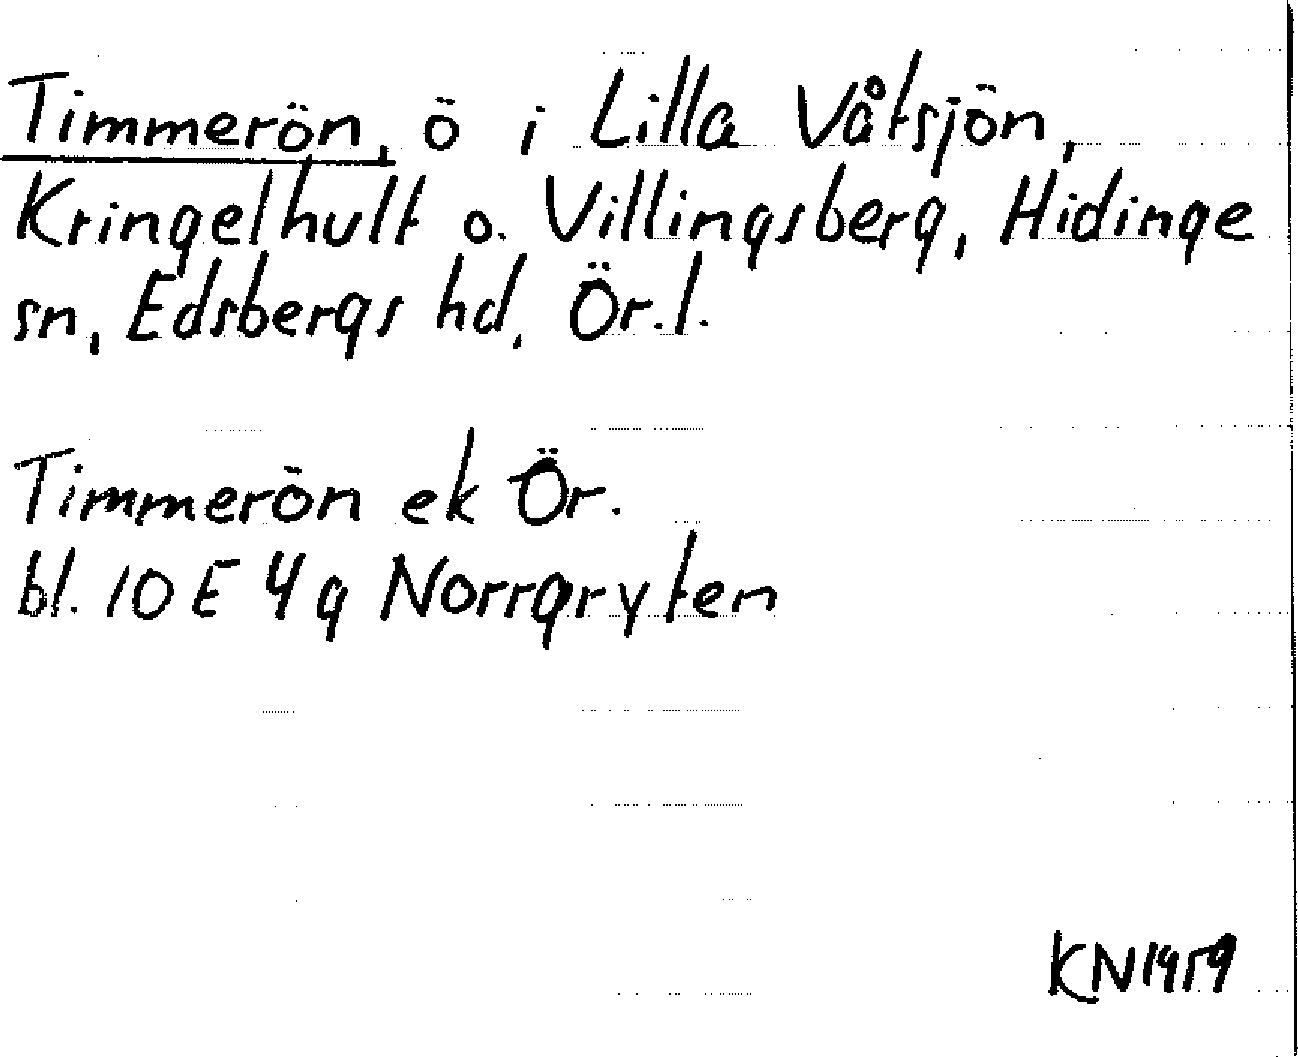 Timmerön, ö i Lilla Våtsjön,
Kringelhult o. Villingsberg, Hidinge
sn, Edsbergs hd, Ör.l.
Timmerön ek Ör.
bl. 10 E 4g Norrgryten
KN1959